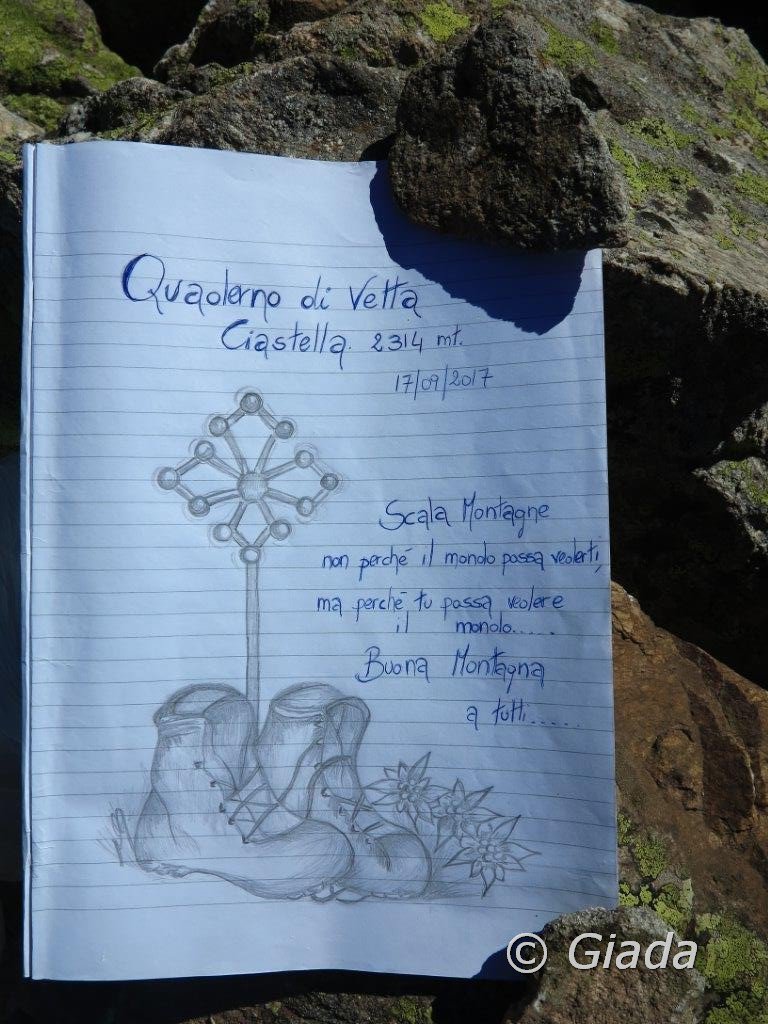 Quaderno di Vetta
Ciastella 2314 mt.
17/09/2017
Scala Montagne
non perché il mondo possa vederti,
ma perché tu possa vedere
il mondo......
Buona Montagna
a tutti......
© Giada